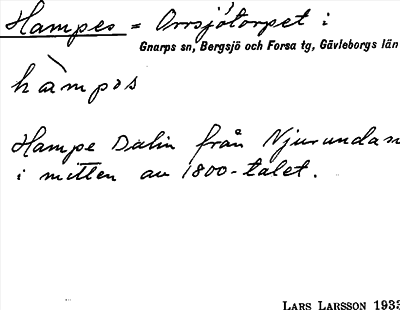 Hampes = Orrsjötorpet i
Gnarps sn, Bergsjö och Forsa tg, Gävleborgs län
hàmpɷs
Hampe Dalin från Njurundan
i mitten av 1800-talet.
LARS LARSSON 1933